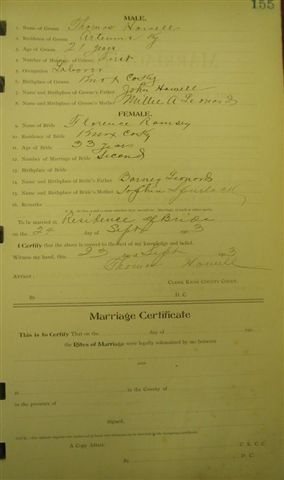 155
MALE.
1. Name of Groom Thomas Howell
2. Residence of Groom Artemus Ky
3. Age of Groom 21 years
4. Number of Marriage of Groom First
5. Occupation Laborer
6. Birthplace Knox Co Ky
7. Name and Birthplace of Groom's Father John Howell
8. Name and Birthplace of Groom's Mother Millie A Leonard
FEMALE.
9. Name of Bride Florence Ramsey
10. Residence of Bride Knox Co Ky
11. Age of Bride 33 years
12. Number of Marriage of Bride Second
13. Birthplace of Bride
14. Name and Birthplace of Bride's Father Barney Leonard
15. Name and Birthplace of Bride's Mother Sophia
16. Remarks
To be married at Residence of Bride
on the 24 day of Sept 3
I Certify that the above is correct to the best of my knowledge and belief.
Witness my hand, this 23 day Sept 3
Thomas Howell
Attest:
Clerk Knox County Court.
By D. C.
Marriage Certificate
This is to Certify That on the day of 190
the Rites of Marriage were legally solemnized by me between
and
at in the County of
in the presence of
Signed,
A Copy Attest: C.K.C.C.
By D. C.